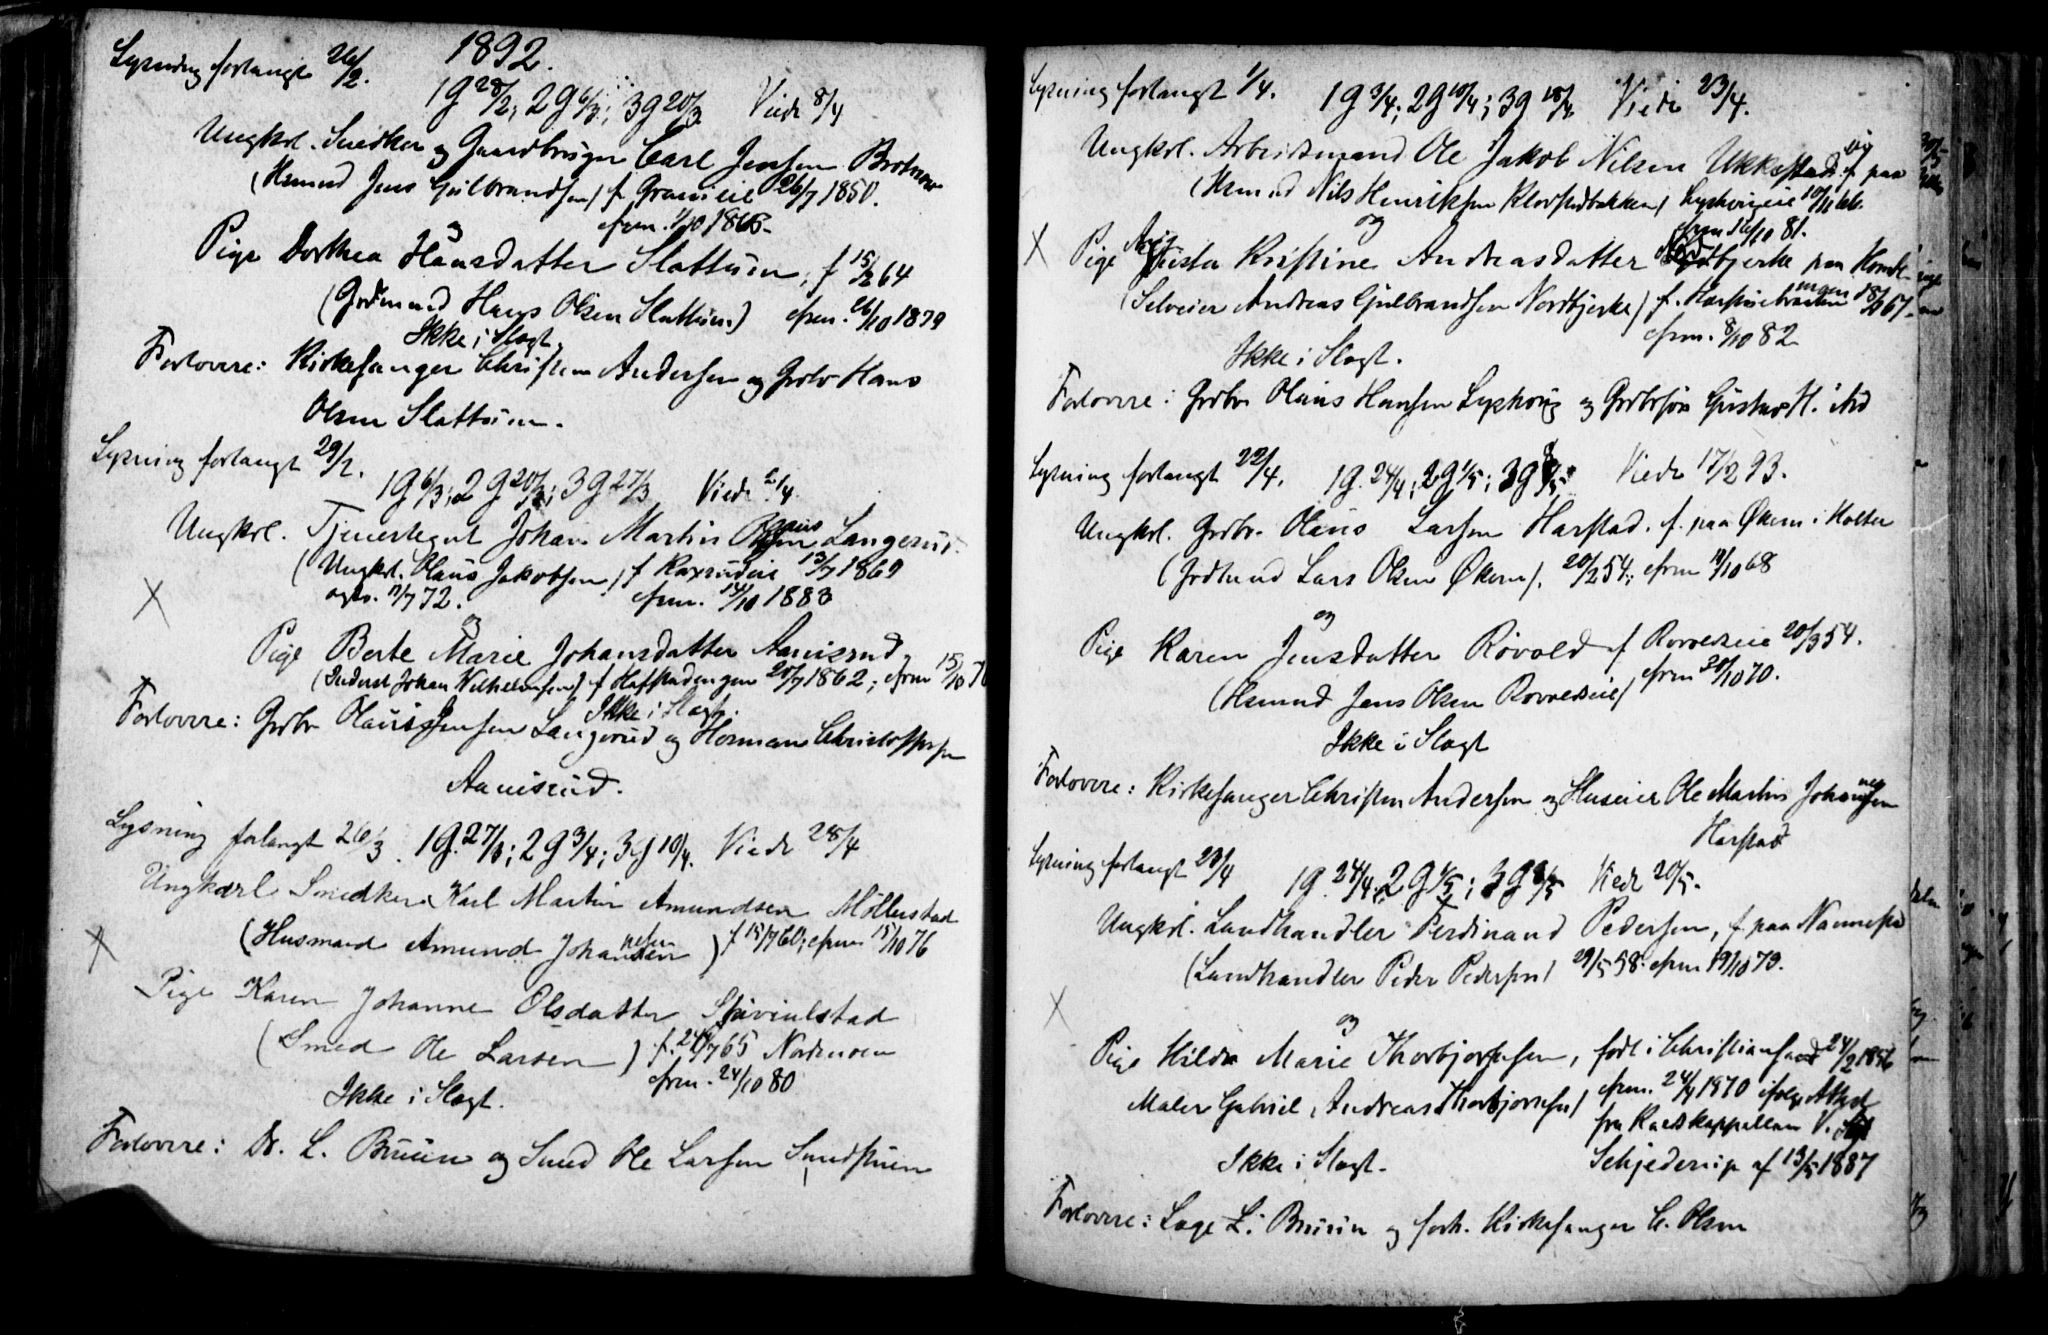 1892.
Lysning forlangt 26/2.
1g 28/2; 2g 6/3; 3g 20/3 Viede 8/4
Ungkrl. Snedker og Gaardbruger Carl Jensen
(Hsmnd Jens Gulbrandsen) f. 26/7 1850.
og
cfrm. 1/10 1865
Pige Dorthea Hansdatter Slattum, f 15/2 64
(Grdmand Hans Olsen Slattum) cfrm. 26/10 1879
Ikke i Slægt.
Forlovere: Kirkesanger Christen Andersen og Grdbr Hans
Olsen Slattum.
Lysning forlangt 29/2.
1g 6/3; 2g 20/3; 3g 27/3 Viede 2/4.
Ungkrl. Tjenestegut Johan Martin Langerud.
(Ungkrl. Olaus Jakobsen) f 13/7 1869
17/7 72. cfrm. 14/10 1883
og
X
Pige Berte Marie Johansdatter Aamisrud,
(Inderst Johan Vilhelmsen) f Hafstadengen 20/7 1862; cfrm 15/10
Ikke i Slægt.
Forlovere: Grdbr Olaus Jensen Langerud og Herman Christoffersen
Aamisrud.
Lysning forlangt 26/3. 1g. 27/3; 2g 3/4; 3g 10/4. Viede 28/4
Ungkarl Snedker Karl Martin Amundsen Möllerstad
(Husmand Amund Johannesen) f 15/7 60; cfrm 15/10 76
X
Pige Karen Johanne Olsdatter
(Smed Ole Larsen) f. 24/7 65 Nordmoen
cfrm. 24/10 80
Ikke i Slægt.
Forlovere: Dr. L. Bruun og Smed Ole Larsen
Lysning forlangt 1/4. 1g 3/4; 2g 10/4; 3g 18/4 Viede 23/4.
Ungkrl. Arbeidsmand Ole Jakob Nilsen Ukkestad f. paa
(Hsmnd Nils Henriksen Kloppedbakken) 10/11 66.
og cfrm 16/10 81.
X
Pige Kristine Andreasdatter paa
(Selveier Andreas Gulbrandsen Nordbjerke) f. 18/2 67.
cfrm. 8/10 82
Ikke i Slægt.
Forlovere: Grdbr Olaus Hansen og Grdbrsøn Gustav H. ibid
Lysning forlangt 22/4. 1g. 24/4; 2g 1/5; 3g 8/5 Viede 17/2 93.
Ungkrl. Grdbr. Olaus Larsen Harstad. f. paa Økern i Holter
(Grdmand Lars Olsen Økern). 20/2 54; cfrm 11/10 68
og
Pige Karen Jensdatter Rövold f 20/3 54.
cfrm 30/10 70.
(Hsmnd Jens Olsen)
Ikke i Slægt
Forlovere: Kirkesanger Christen Andersen og Huseier Ole Martin Johannesen
Harstad
Lysning forlangt 23/4 1g. 24/4; 2g 1/5; 3g 8/5 Viede 20/5.
Ungkrl. Landhandler Ferdinand Pedersen, f. paa Nannestad
(Landhandler Peder Pedersen) 29/5 58. cfrm 19/10 73.
X
og
Pige Hilda Marie Thorbjørnsen, født i Christiansand 24/2 1856
Maler Gabriel Andreas Thorbjørnsen) cfrm. 24/4 1870 ifølge Attest
fra Residskappellan V.
Ikke i Slægt. Schjederup af 13/5 1887
Forlovere: Læge L. Bruun og forh. Kirkesanger C. Olsen